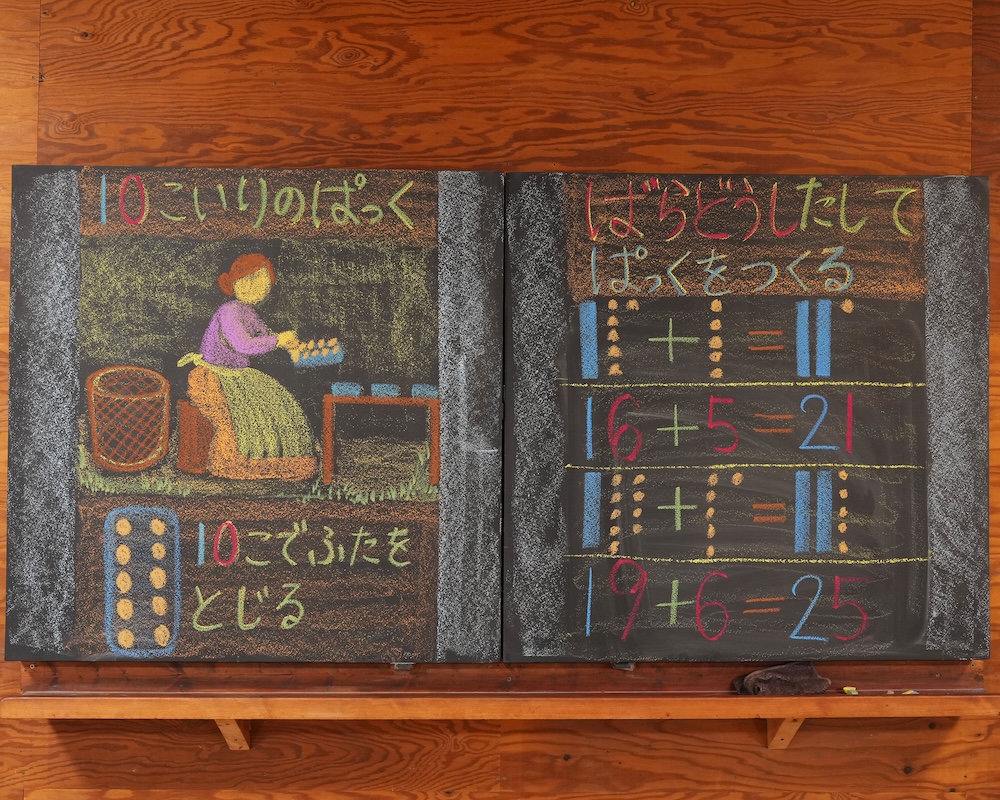 10こいりのぱっく
10こでふたを
とじる
ばらどうしたして
ぱっくをつくる
+ =
16+5=21
+ =
19+6=25